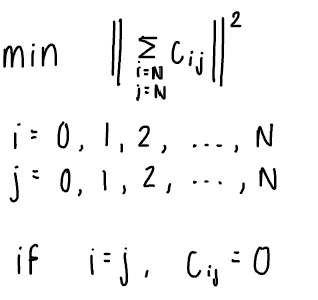 min ‖ Σ_{i=N, j=N} C_{ij} ‖²
i = 0, 1, 2, ..., N
j = 0, 1, 2, ..., N
if i=j, C_{ij} = 0